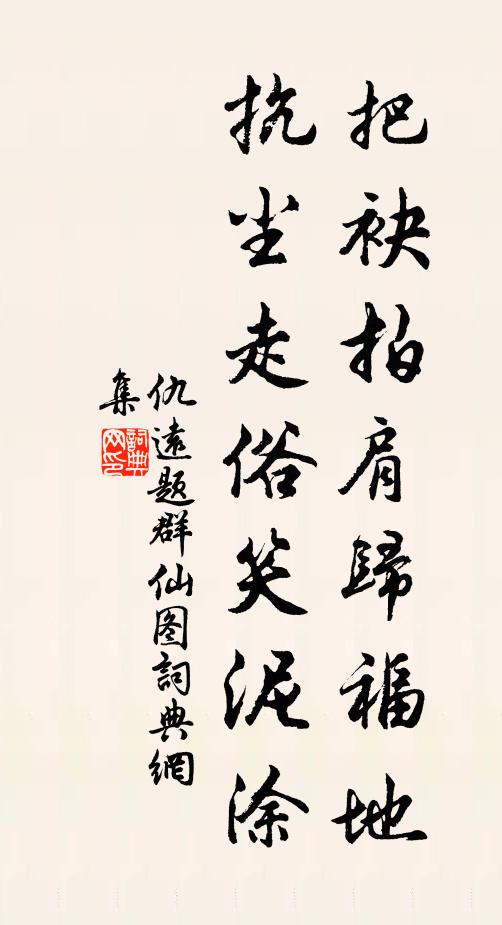 把袂拍肩歸福地
抗尘走俗笑泥涂
仇遠題群仙图詞典網
集
詞典网印